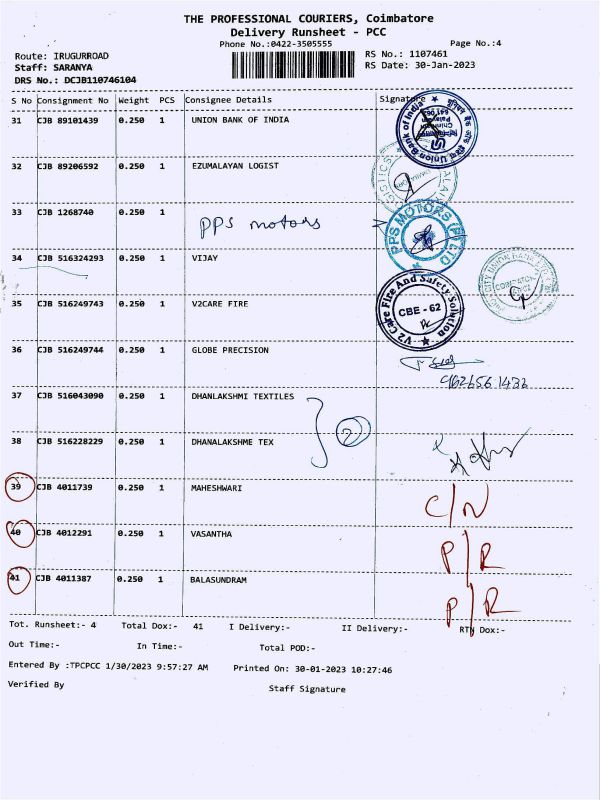 THE PROFESSIONAL COURIERS, Coimbatore
Delivery Runsheet - PCC
Phone No.:0422-3505555
Page No.:4
Route: IRUGURROAD
RS No.: 1107461
Staff: SARANYA
RS Date: 30-Jan-2023
DRS No.: DCJB110746104
S No Consignment No Weight PCS Consignee Details Signature
31 CJB 89101439 0.250 1 UNION BANK OF INDIA
Union Bank of India
32 CJB 89206592 0.250 1 EZUMALAYAN LOGIST
33 CJB 1268740 0.250 1 PPS motors
PPS MOTORS (P) LTD
34 CJB 516324293 0.250 1 VIJAY
35 CJB 516249743 0.250 1 V2CARE FIRE
V2 Care Fire And Safety Solution
CBE - 62
36 CJB 516249744 0.250 1 GLOBE PRECISION
37 CJB 516043090 0.250 1 DHANLAKSHMI TEXTILES
38 CJB 516228229 0.250 1 DHANALAKSHME TEX
2
39 CJB 4011739 0.250 1 MAHESHWARI C/N
40 CJB 4012291 0.250 1 VASANTHA P/R
41 CJB 4011387 0.250 1 BALASUNDRAM P/R
Tot. Runsheet:- 4 Total Dox:- 41 I Delivery:- II Delivery:- RTN Dox:-
Out Time:- In Time:- Total POD:-
Entered By :TPCPCC 1/30/2023 9:57:27 AM Printed On: 30-01-2023 10:27:46
Verified By
Staff Signature